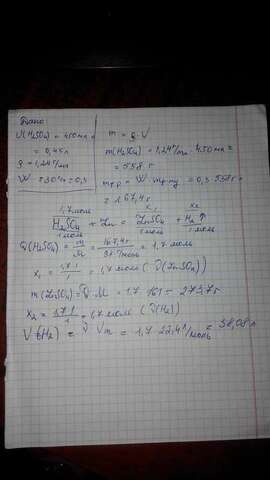 Дано
V(H₂SO₄) = 450 мл =
= 0,45 л
ρ = 1,24 г/мл
W = 30% = 0,3
m = ρ · V
m(H₂SO₄) = 1,24 г/мл · 450 мл =
= 558 г
= W · = 0,3 · 558 г
= 167,4 г
1,7 моль x₁ x₂
H₂SO₄ + Zn = ZnSO₄ + H₂ ↑
1 моль 1 моль 1 моль
ν(H₂SO₄) = m/M = 167,4 г / = 1,7 моль
x₁ = 1,7·1/1 = 1,7 моль (ν(ZnSO₄)
m(ZnSO₄) = ν · M = 1,7 · 161 = 273,7 г
x₂ = 1,7·1/1 = 1,7 моль (ν(H₂)
V(H₂) = ν · Vm = 1,7 · 22,4 л/моль = 38,08 л